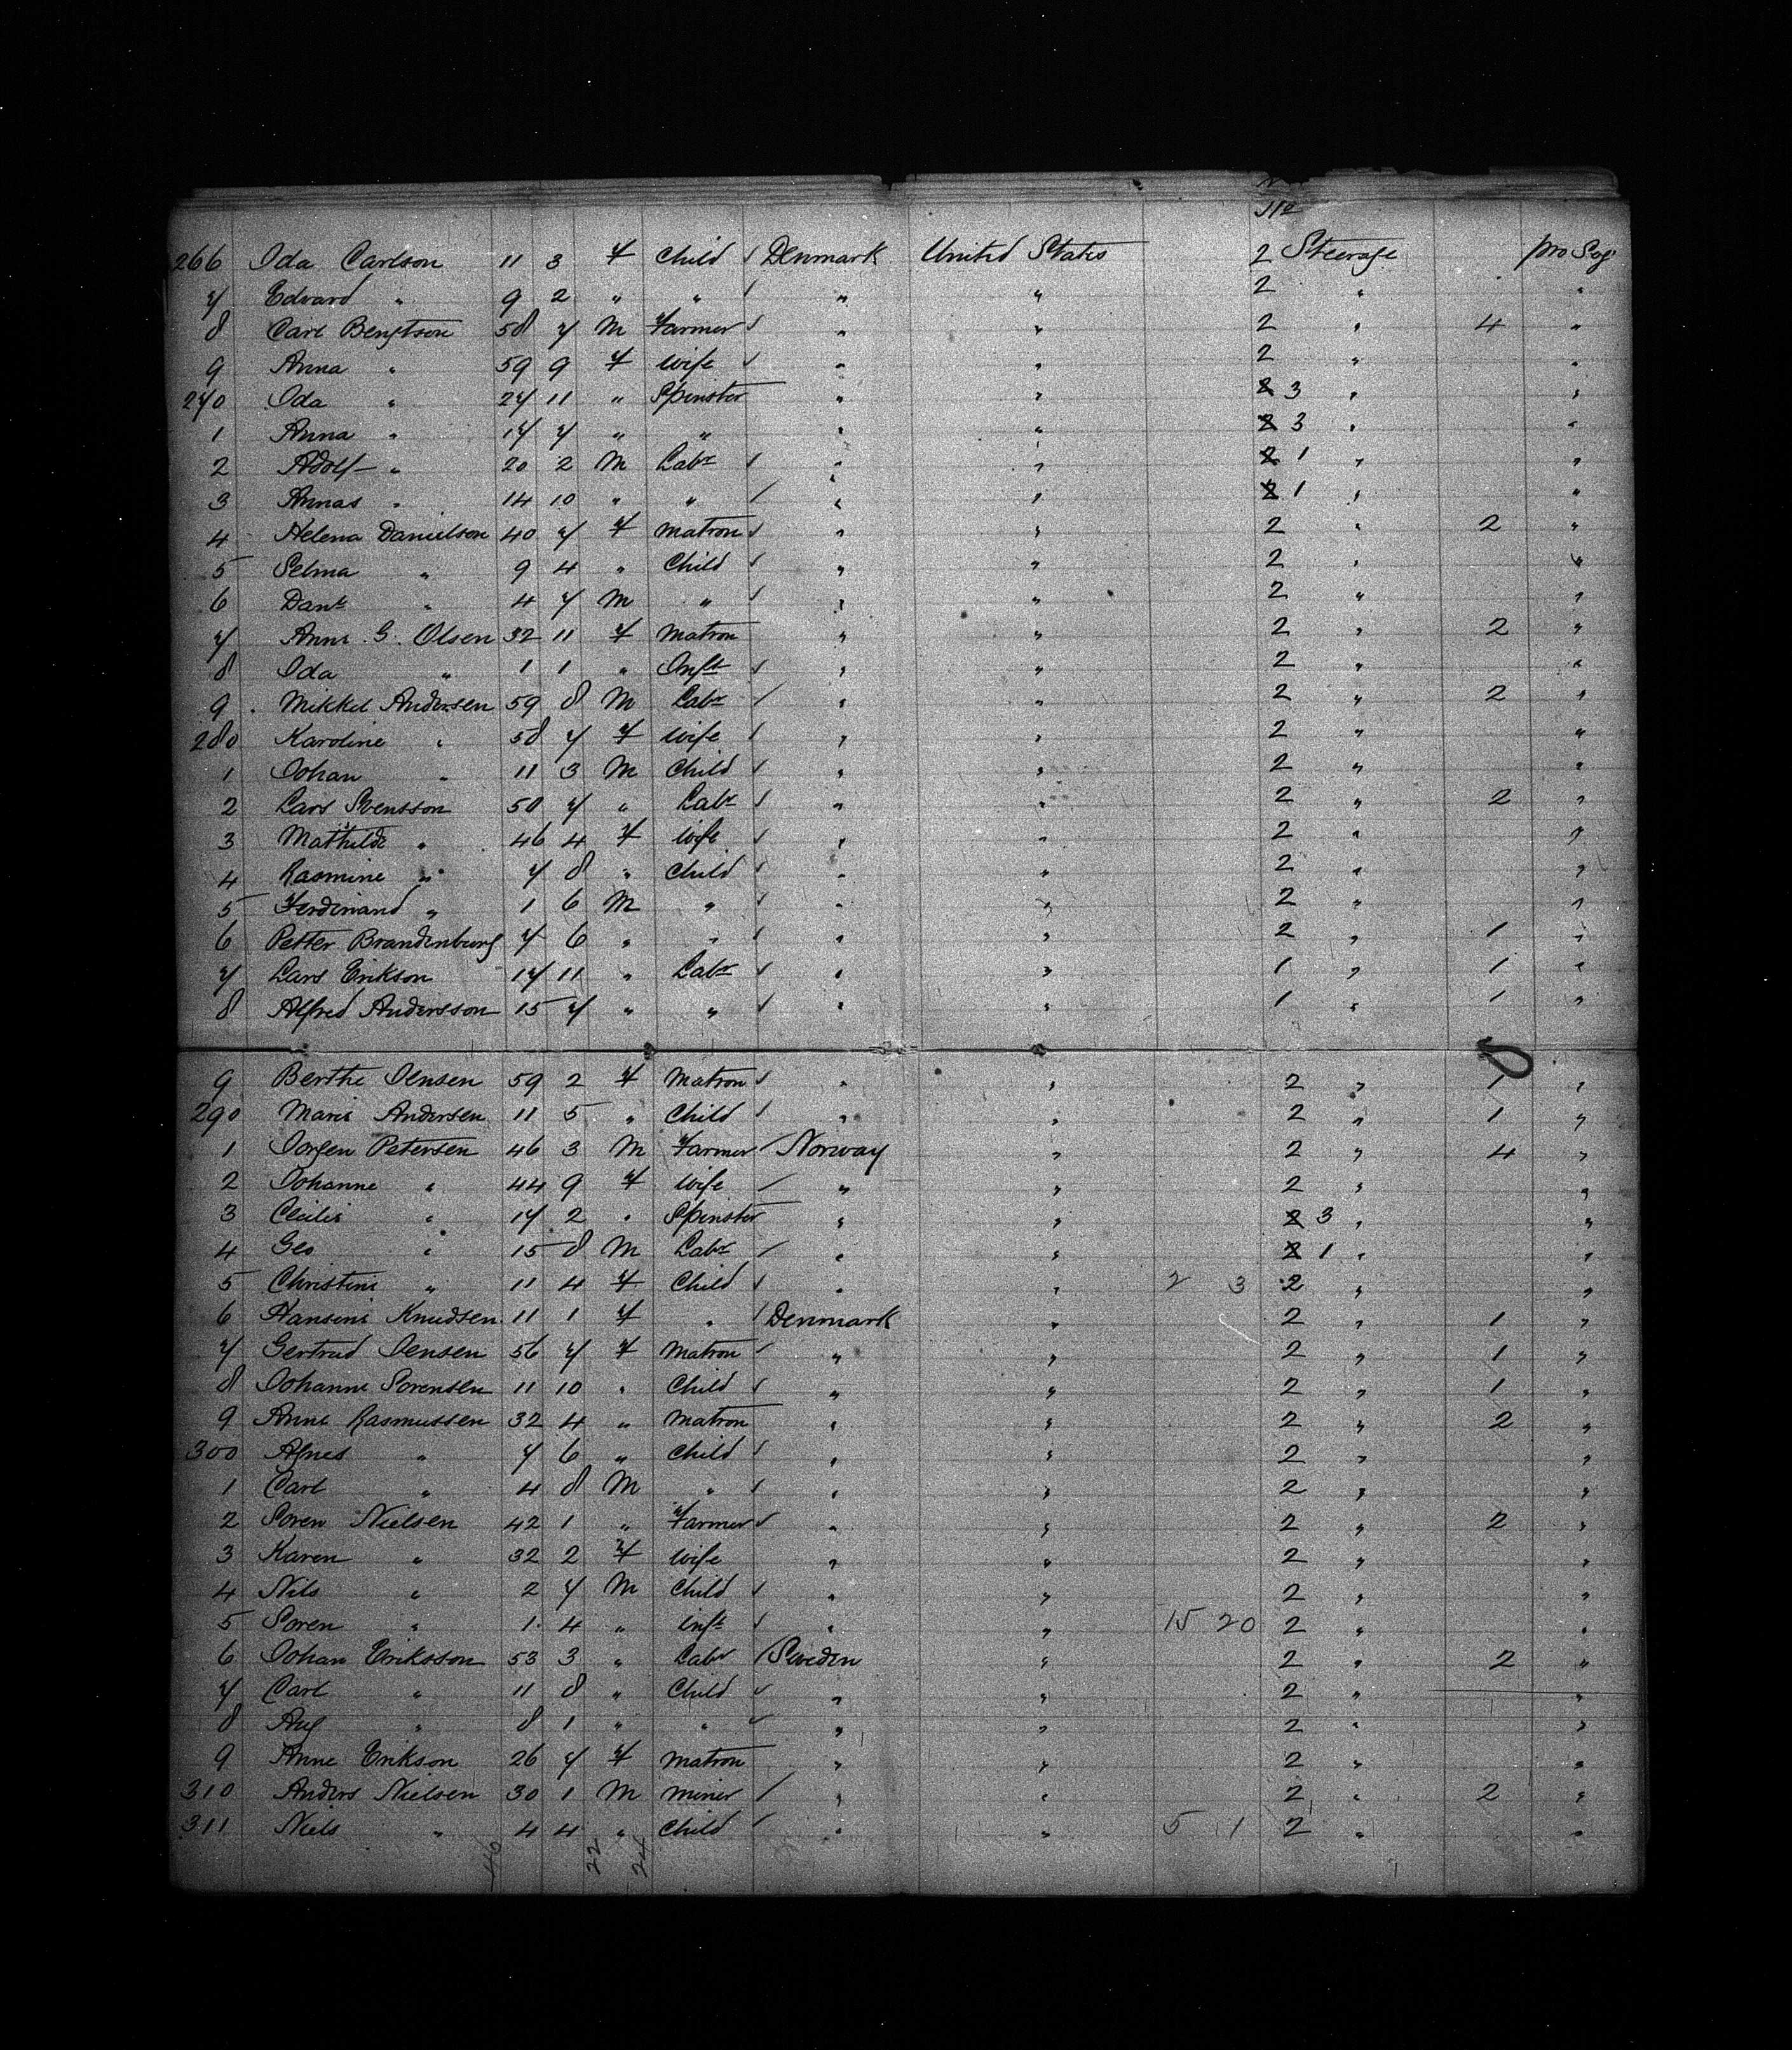 No
266 Ida Carlson 11 3 F Child Denmark United States 2 Steerage pro Sog
7 Edvard " 9 2 " " " " 2 " "
8 Carl Bengtson 58 7 M Farmer " " 2 " 4 "
9 Anna " 59 9 F Wife " " 2 " "
270 Ida " 27 11 " Spinster " " 2 3 " "
1 Anna " 17 7 " " " " 2 3 " "
2 Adolf " 20 2 M Labr " " 2 1 " "
3 Annas " 14 10 " " " " 2 1 " "
4 Helena Danielson 40 7 F Matron " " 2 " 2 "
5 Selma " 9 4 " Child " " 2 " "
6 Danl " 4 7 M " " " 2 " "
7 Anne G. Olsen 32 11 F Matron " " 2 " 2 "
8 Ida " 1 1 " Inft " " 2 " "
9 Mikkel Andersen 59 8 M Labr " " 2 " 2 "
280 Karoline " 58 7 F Wife " " 2 " "
1 Johan " 11 3 M Child " " 2 " "
2 Lars Svensson 50 7 " Labr " " 2 " 2 "
3 Mathilde " 46 4 F Wife " " 2 " "
4 Rasmine " 7 8 " Child " " 2 " "
5 Ferdinand " 1 6 M " " " 2 " "
6 Petter Brandenburg 7 6 " " " " 2 " 1 "
7 Lars Erikson 17 11 " Labr " " 1 " 1 "
8 Alfred Andersson 15 7 " " " " 1 " 1 "
9 Berthe Jensen 59 2 F Matron " " 2 " 1 "
290 Marie Andersen 11 5 " Child " " 2 " 1 "
1 Jorgen Petersen 46 3 M Farmer Norway " 2 " 4 "
2 Johanne " 44 9 F Wife " " 2 " "
3 Cecilie " 17 2 " Spinster " " 2 3 " "
4 Geo " 15 8 M Labr " " 2 1 " "
5 Christine " 11 4 F Child " " 2 3 2 " "
6 Hansine Knudsen 11 1 F " Denmark " 2 " 1 "
7 Gertrud Jensen 56 7 F Matron " " 2 " 1 "
8 Johanne Sorensen 11 10 " Child " " 2 " 1 "
9 Anne Rasmussen 32 4 " Matron " " 2 " 2 "
300 Agnes " 7 6 " Child " " 2 " "
1 Carl " 4 8 M " " " 2 " "
2 Soren Nielsen 42 1 " Farmer " " 2 " 2 "
3 Karen " 32 2 F Wife " " 2 " "
4 Nils " 2 7 M Child " " 2 " "
5 Soren " 1 4 " Inft " " 15 20 2 " "
6 Johan Eriksson 53 3 " Labr Sweden " 2 " 2 "
7 Carl " 11 8 " Child " " 2 " "
8 Aug " 8 1 " " " " 2 " "
9 Anne Erikson 26 7 F Matron " " 2 " "
310 Anders Nielsen 30 1 M Miner " " 2 " 2 "
311 Niels " 4 4 " Child " " 5 1 2 " "
46 22 24